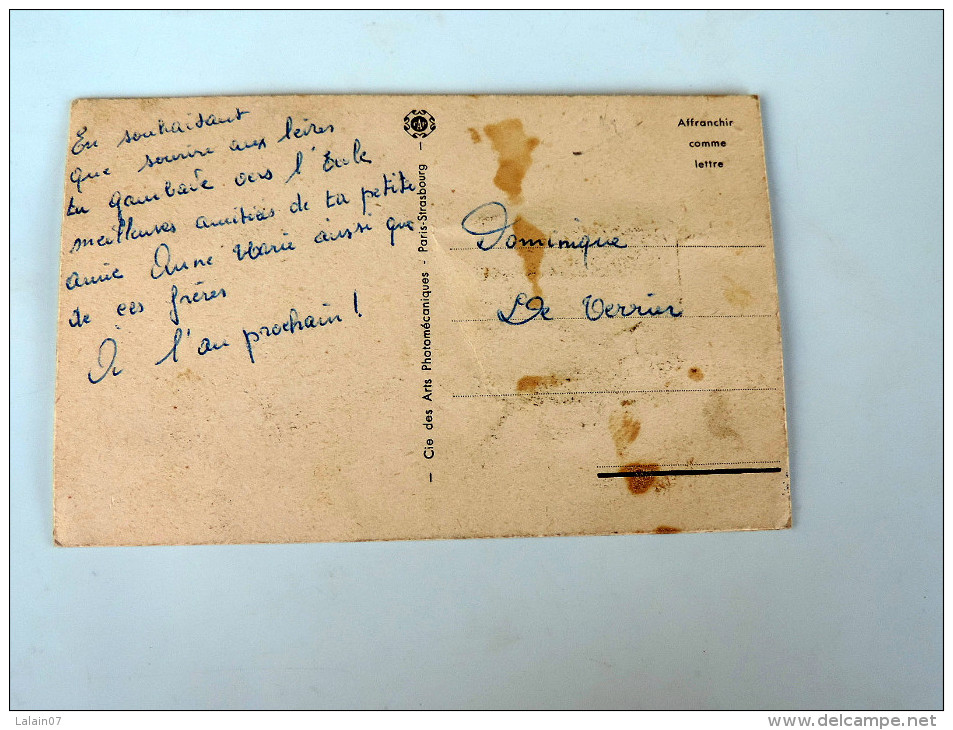 En souhaitant
que sourire aux lèvres
tu gambade vers l'École
meilleures amitiés de ta petite
amie Anne Marie aussi que
de ces frères
À l'an prochain!
— Cie des Arts Photomécaniques - Paris-Strasbourg —
Affranchir
comme
lettre
Dominique
De Verrier
Lalain07
www.delcampe.net